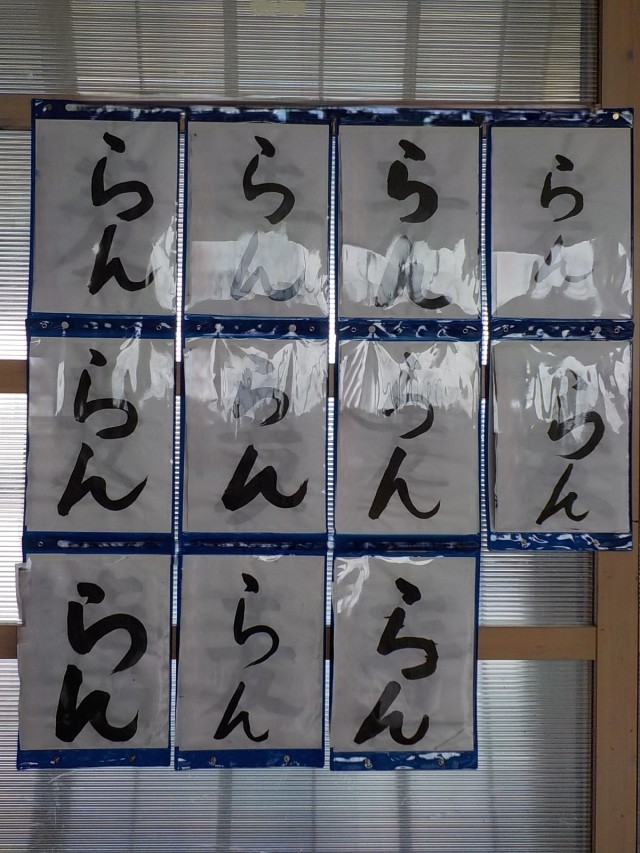 らん
らん
らん
らん
らん
らん
らん
らん
らん
らん
らん